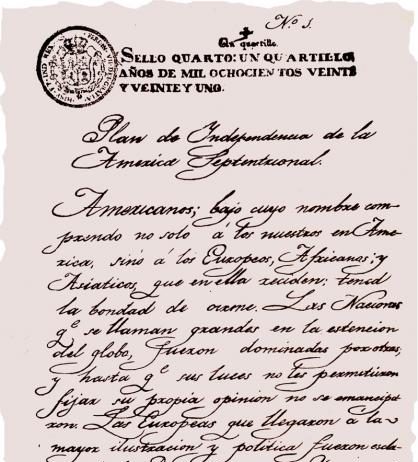 N.º 1.
Un quartillo.
SELLO QUARTO: UN QUARTILLO
AÑOS DE MIL OCHOCIENTOS VEINTE
Y VEINTE Y UNO.
Plan de Independencia de la
America Septentrional.
Americanos; bajo cuyo nombre com
prendo no solo á los nuestros en Ame
rica, sino á los Europeos, Africanos, y
Asiaticos, que en ella reciden: tened
la bondad de oirme. Las Naciones
q.e se llaman grandes en la estencion
del globo, fueron dominadas por otras;
y hasta q.e sus luces no les permitieron
fijar su propia opinion no se emancipa
ron. Las Europeas que llegaron á la
mayor ilustracion y politica fueron escla